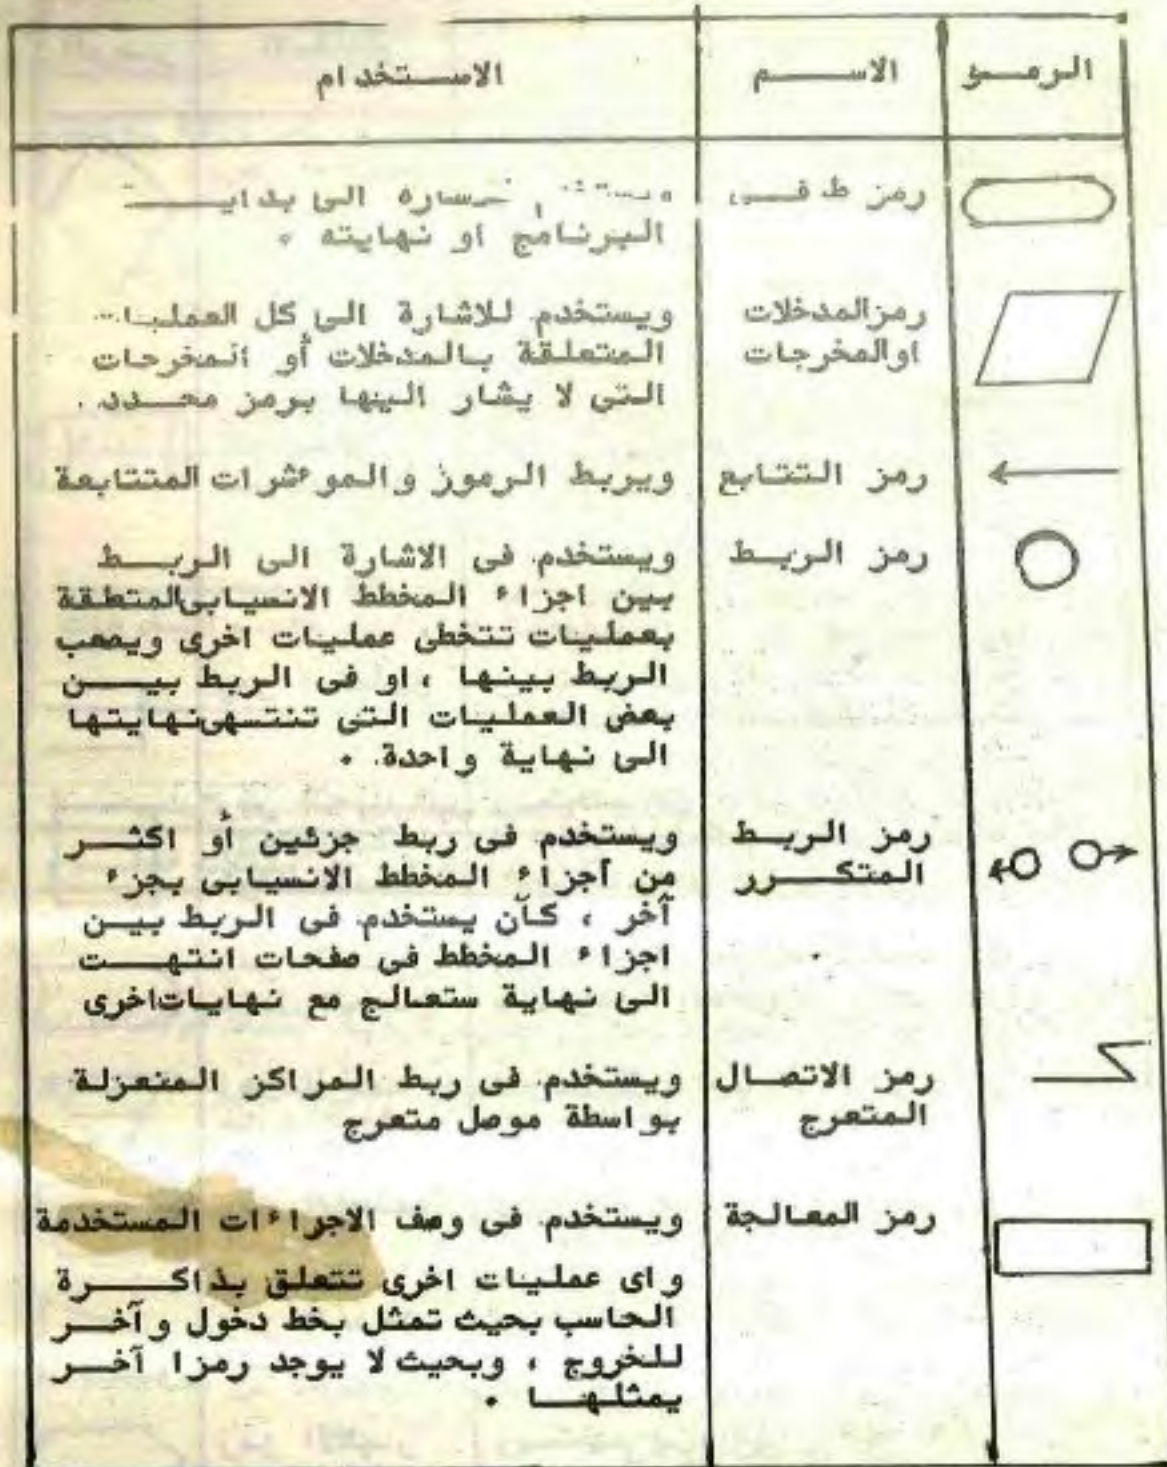 الرمـــو الاســـــم الاســـتخدام
رمز الى بدايـــــة
البرنامج او نهايته .
رمزالمدخلات ويستخدم للاشارة الى كل العمليات
اوالمخرجات المتعلقة بالمدخلات أو المخرجات
التى لا يشار الينها برمز محــدد .
رمز التتابع ويربط الرموز والموءشرات المتتابعة
رمز الربــط ويستخدم فى الاشارة الى الربــط
بين اجزاء المخطط الانسيابىالمتطقة
بعمليات تتخطى عمليات اخرى ويصعب
الربط بينها ، او فى الربط بيـــن
بعض العمليات التى تنتسهىنهايتها
الى نهاية واحدة .
رمز الربــط ويستخدم فى ربط جزئين أو اكثــر
المتكـــرر من أجزاء المخطط الانسيابى بجزء
آخر ، كأن يستخدم فى الربط بيــن
اجزاء المخطط فى صفحات انتهــت
الى نهاية ستعالج مع نهاياتاخرى
رمز الاتصــال ويستخدم فى ربط المراكز المنعزلة
المتعرج بواسطة موصل متعرج
رمز المعالجة ويستخدم فى وصف الاجراءات المستخدمة
واى عمليات اخرى تتعلق بذاكـــرة
الحاسب بحيث تمثل بخط دخول وآخــر
للخروج ، وبحيث لا يوجد رمزا آخــر
يمثلهــا .